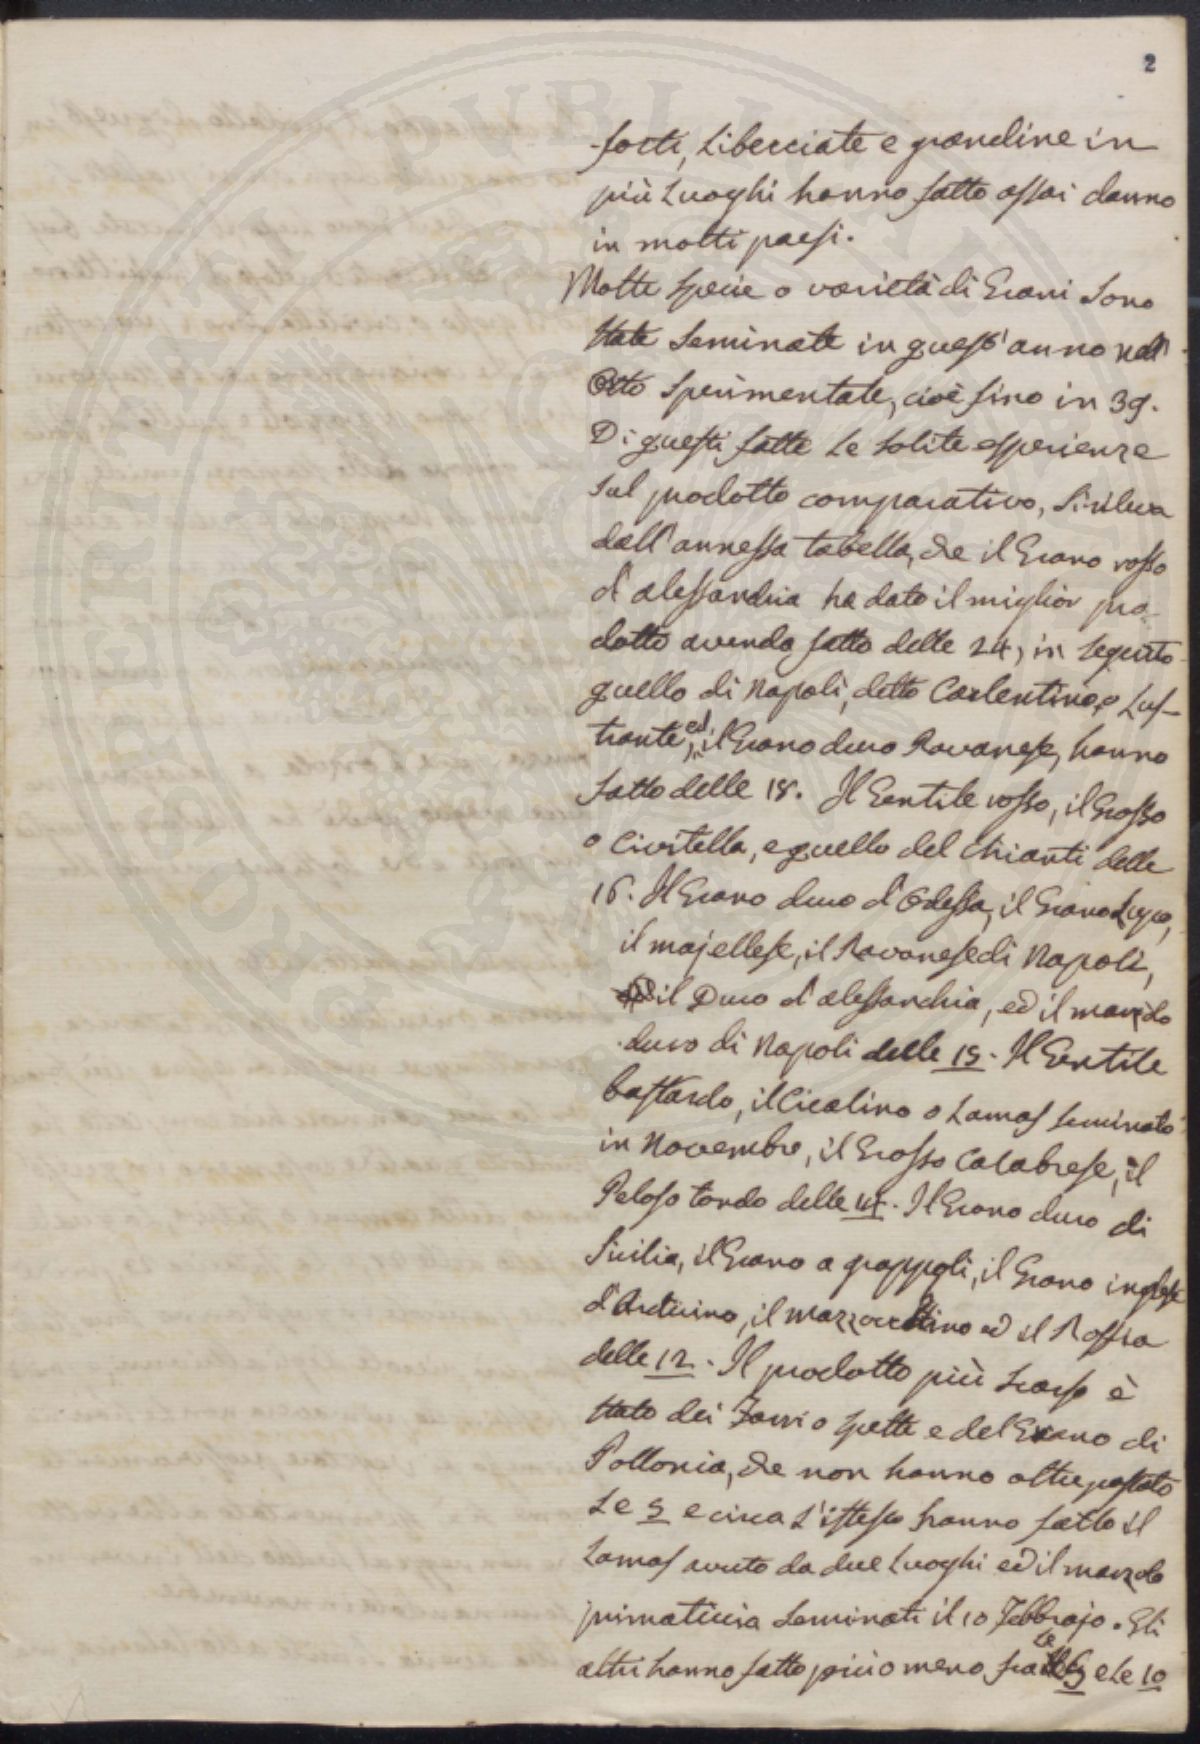 2
forti, Libecciate e grandine in
più Luoghi hanno fatto assai danno
in molti paesi.
Molte specie o varietà di Grani sono
state seminate in quest'anno nell'
Orto sperimentale, cioè fino in 39.
Di questi fatte le solite esperienze
sul prodotto comparativo, si rileva
dall'annessa tabella, che il Grano rosso
d'alessandria ha dato il miglior pro-
dotto avendo fatto delle 24, in seguito
quello di Napoli, detto Carlentino, o Lus-
trante, ed il Grano duro Ravanese, hanno
fatto delle 18. Il Gentile rosso, il Grosso
o Civitella, e quello del Chianti delle
16. Il Grano duro d'Odessa, il Grano
il majellese, il Ravanese di Napoli,
il Duro d'alessandria, ed il marzolo
duro di Napoli delle 15. Il Gentile
bastardo, il Cicalino o Lamas seminato
in Novembre, il Grosso Calabrese, il
Peloso tondo delle 14. Il Grano duro di
Sicilia, il Grano a grappoli, il Grano inglese
d'Arduino, il mazzocchino ed il Rossia
delle 12. Il prodotto più scarso è
stato dei Farri o spelte e del Grano di
Pollonia, che non hanno oltrepassato
Le 5 e circa L'istesso hanno fatto il
Lamas avuto da due Luoghi ed il marzolo
primaticcio seminati il 10 Febbrajo. Gli
altri hanno fatto più o meno fra le e Le 10
PROPRIETARI PVBLICAE